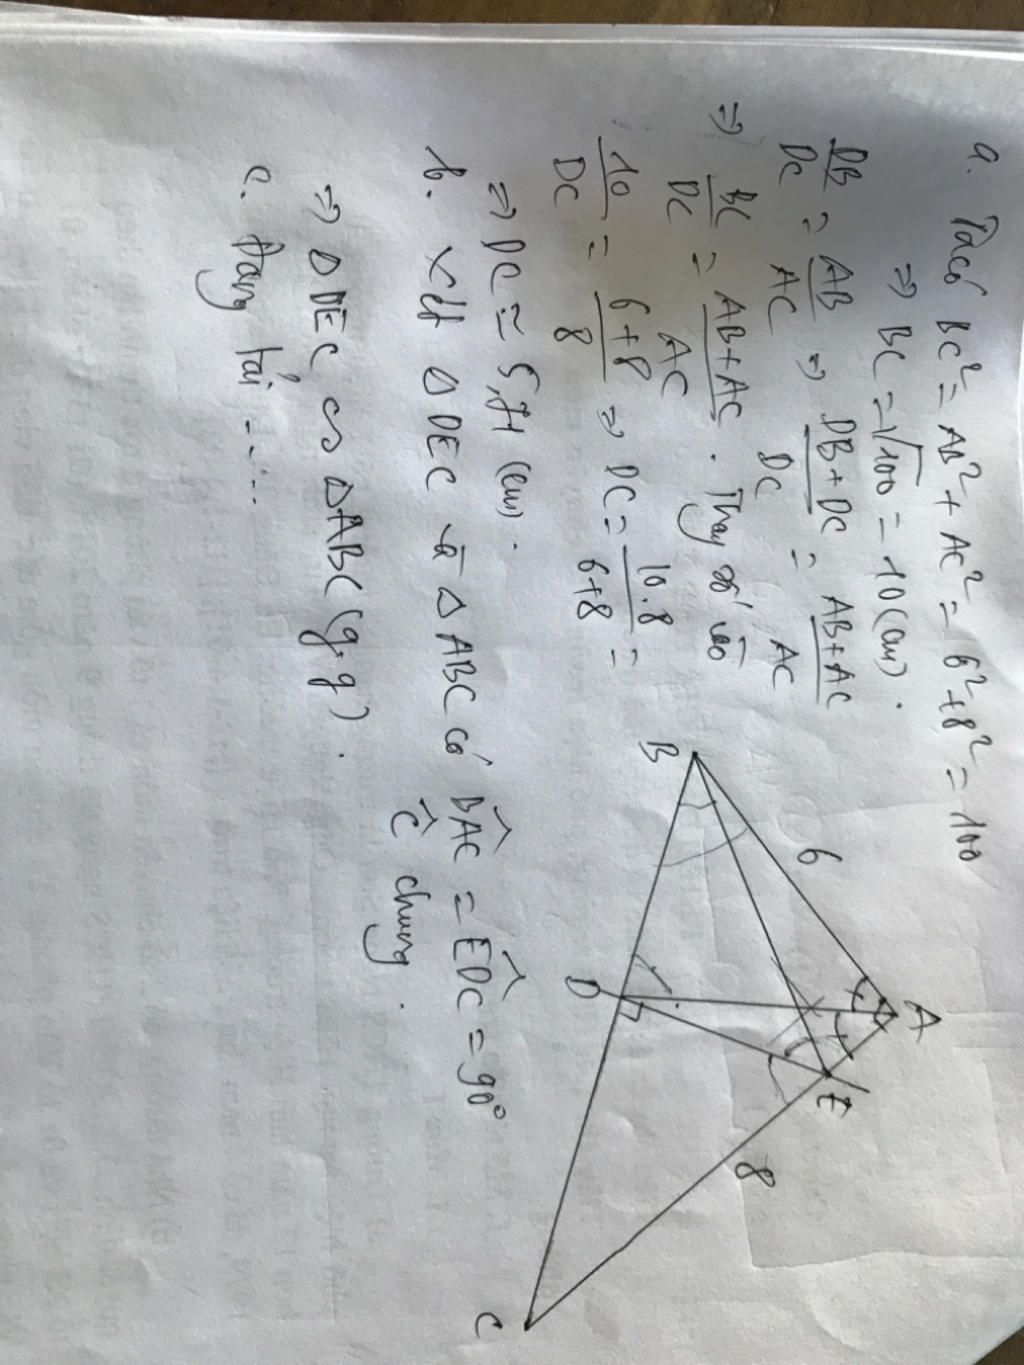 a. Ta có BC² = AB² + AC² = 6² + 8² = 100
⇒ BC = √100 = 10 (cm).
DB/DC = AB/AC ⇒ DB+DC/DC = AB+AC/AC
⇒ BC/DC = AB+AC/AC . Thay số vào
10/DC = 6+8/8 ⇒ DC = 10.8/6+8 =
⇒ DC = 5,71 (cm).
b. Xét Δ DEC và Δ ABC có BAC = EDC = 90°
C chung.
⇒ Δ DEC ∽ Δ ABC (g.g).
c. Đang tải .....
A
B
C
D
E
6
8